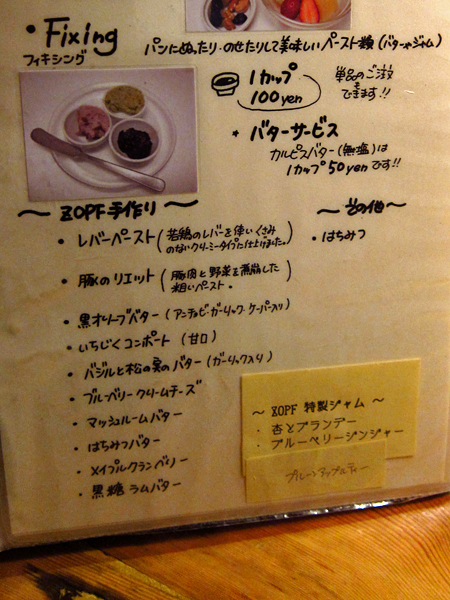 ・Fixing
フィキシング
パンにぬったり・のせたりして美味しいペースト類 (バターorジャム)
1カップ
100yen
単品のご注文
できます!!
* バターサービス
カルピスバター (無塩) は
1カップ 50yen です!!
～ ZOPF手作り ～
・レバーペースト (若鶏のレバーを使いくさみ
のないクリーミータイプに仕上げました。)
・豚のリエット (豚肉と野菜を煮崩した
粗いペースト。)
・黒オリーブバター (アンチョビ・ガーリック・ケーパー入り)
・いちじくコンポート (甘口)
・バジルと松の実のバター (ガーリック入り)
・ブルーベリークリームチーズ
・マッシュルームバター
・はちみつバター
・メイプルクランベリー
・黒糖 ラムバター
～ その他 ～
・はちみつ
～ ZOPF 特製ジャム ～
・杏とブランデー
・ブルーベリージンジャー
プルーンアップルティー